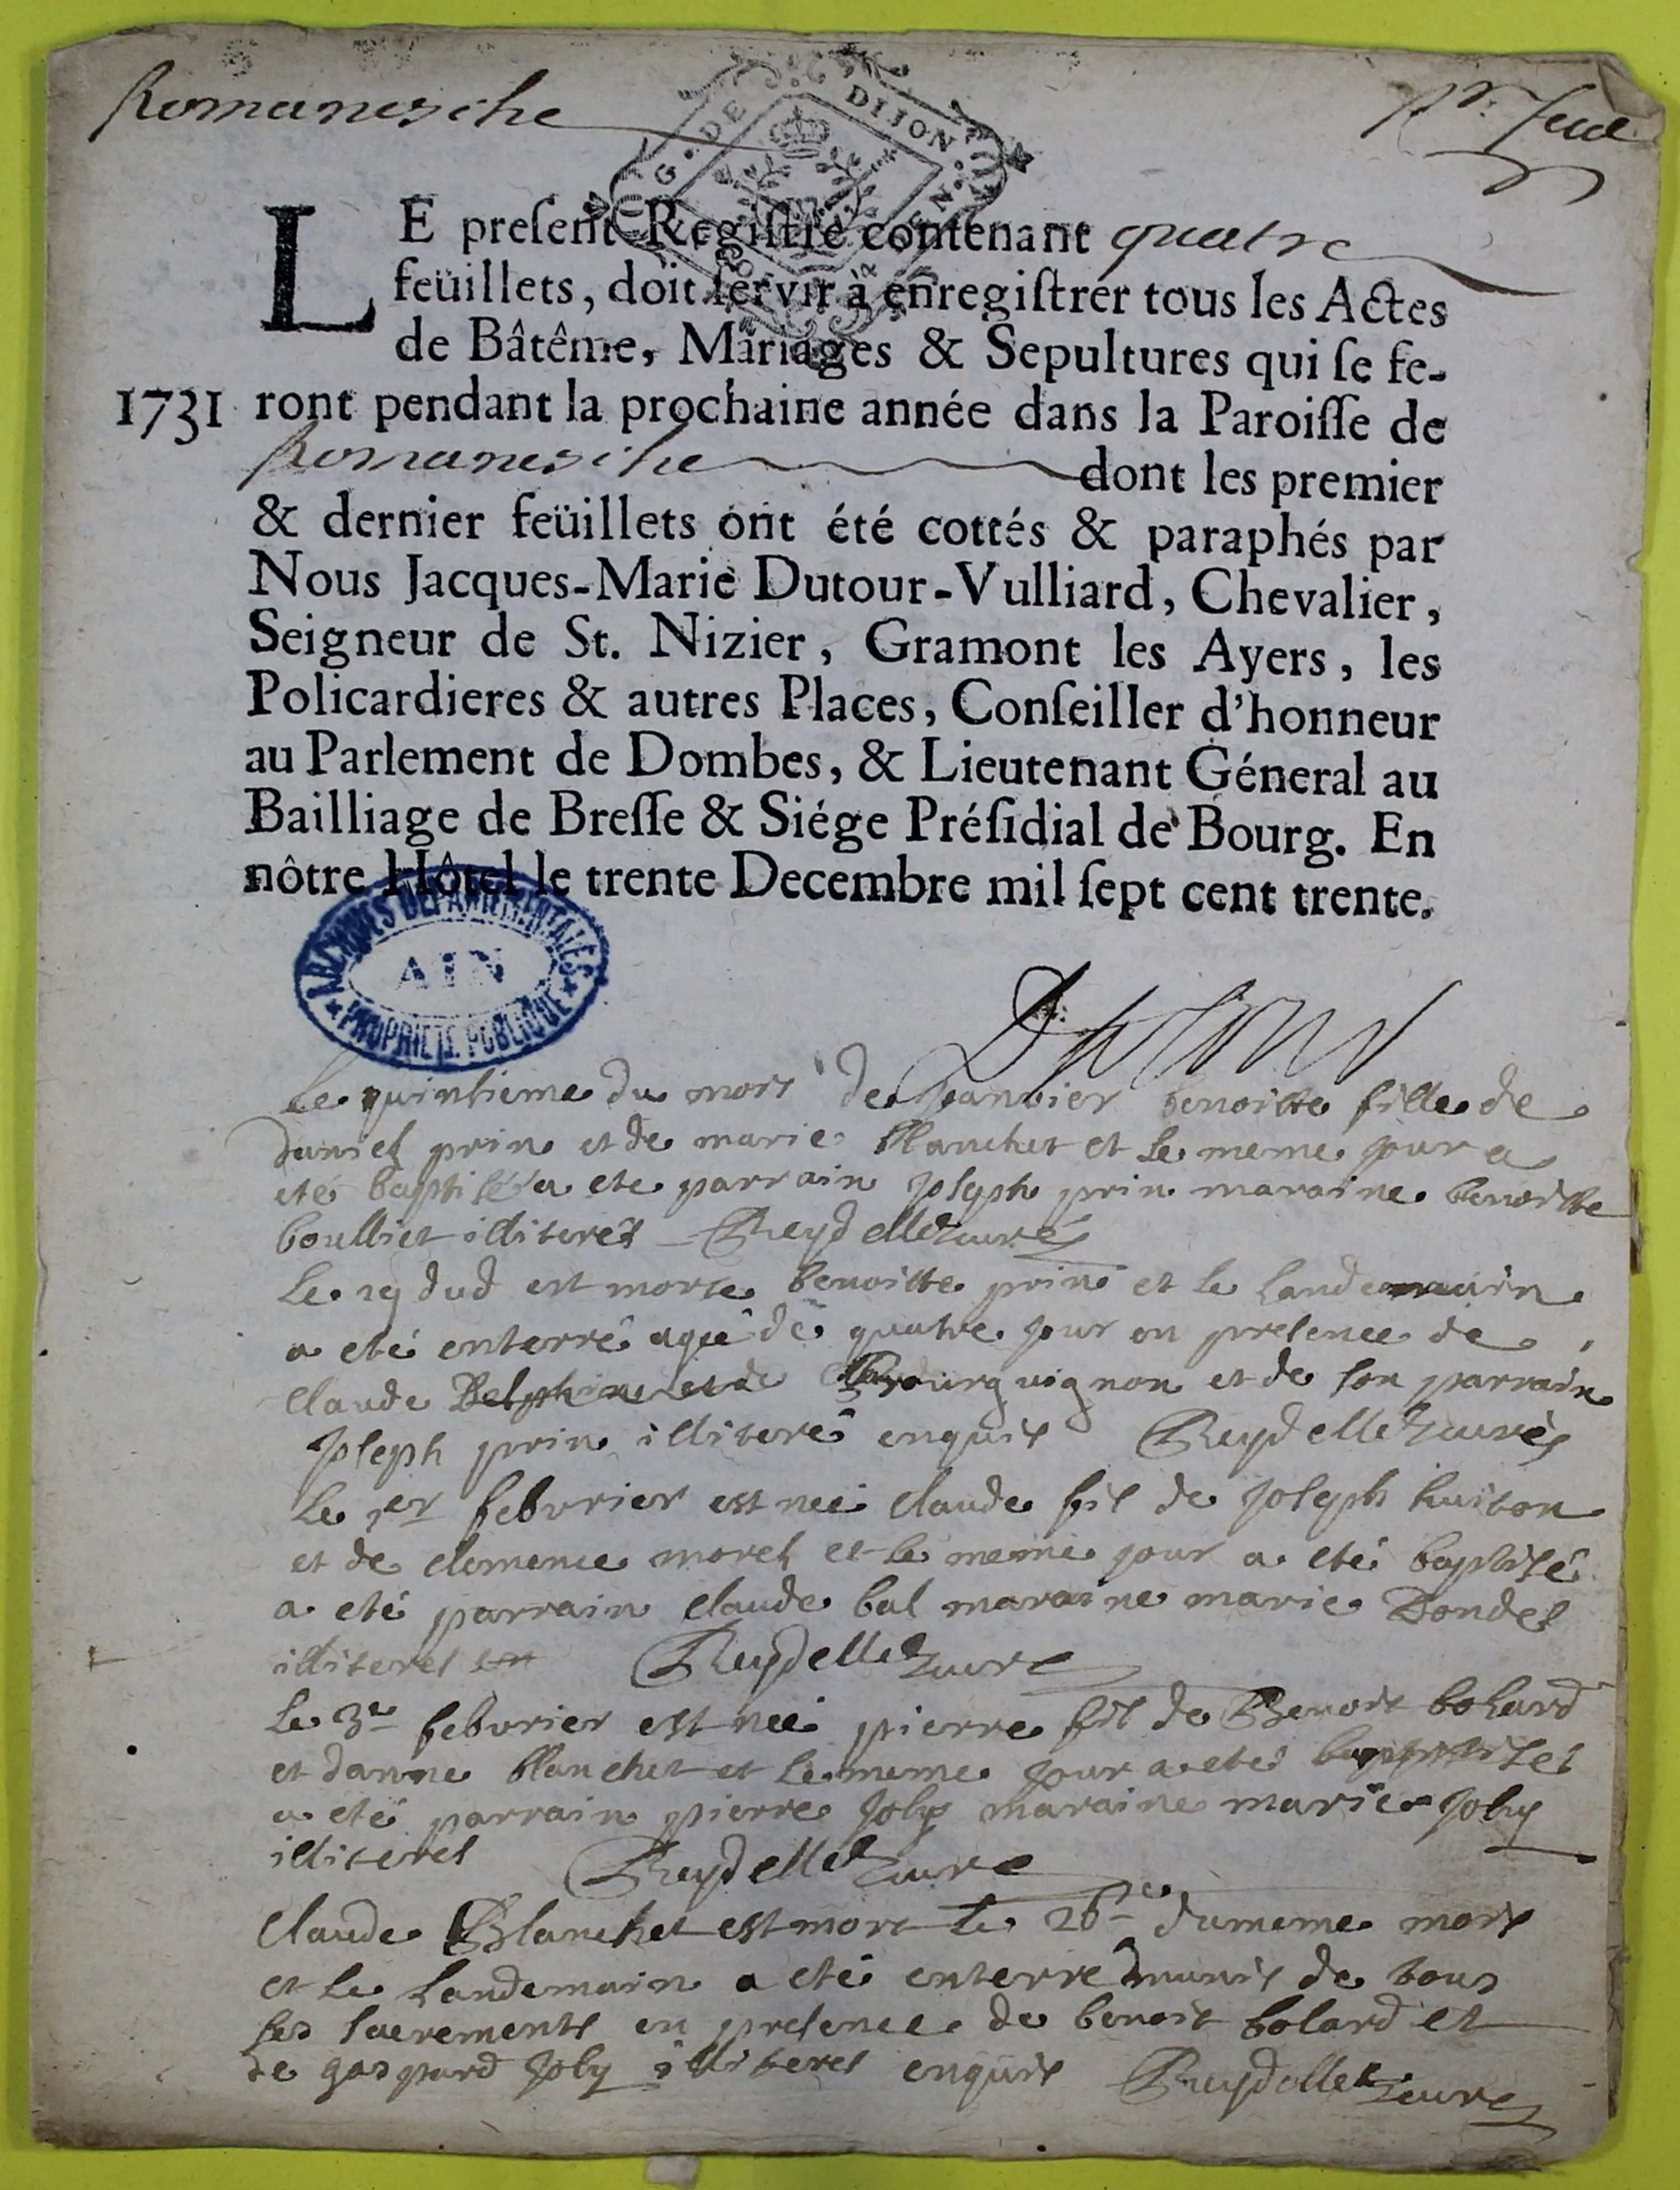 Romanesche
G. DE DIJON
LE preſent Regiſtre contenant quatre
feüillets, doit ſervir à enregiſtrer tous les Actes
de Bâtême, Mariages & Sepultures qui ſe fe-
1731 ront pendant la prochaine année dans la Paroiſſe de
Romanesche dont les premier
& dernier feüillets ont été cottés & paraphés par
Nous Jacques-Marie Dutour-Vulliard, Chevalier,
Seigneur de St. Nizier, Gramont les Ayers, les
Policardieres & autres Places, Conſeiller d'honneur
au Parlement de Dombes, & Lieutenant Géneral au
Bailliage de Breſſe & Siége Préſidial de Bourg. En
nôtre Hôtel le trente Decembre mil ſept cent trente.
ARCHIVES DEPARTEMENTALES
AIN
PROPRIETE PUBLIQUE
Dutour
Le quintieme du mois de Janvier benoitte fille de
daniel prin et de marie blanchet et le meme jour a
eté baptisée a ete parrain joseph prin maraine benoitte
boulliet illiterés Reydellet curé
Le 19 dud est morte benoitte prin et le landemain
a eté enterré agée de quatre jour en presence de
claude bourguignon et de son parrain
joseph prin illiteré enquis Reydellet curé
Le 1er febvrier est neé claude fil de joseph huiton
et de clemence morel et le meme jour a eté baptisé
a eté parrain claude bal maraine marie Dondel
illiteres Reydellet curé
Le 3e febvrier est neé pierre fil de Benoit bolard
et danne blanchet et le meme jour a eté baptisé
a eté parrain pierre joly maraine marie joly
illiteres Reydellet curé
Claude Blanchet est mort le 26e du meme mois
et le landemain a eté enterré munis de tous
les sacrements en presence de benoit bolard et
de gaspard joly illiteres enquis Reydellet curé